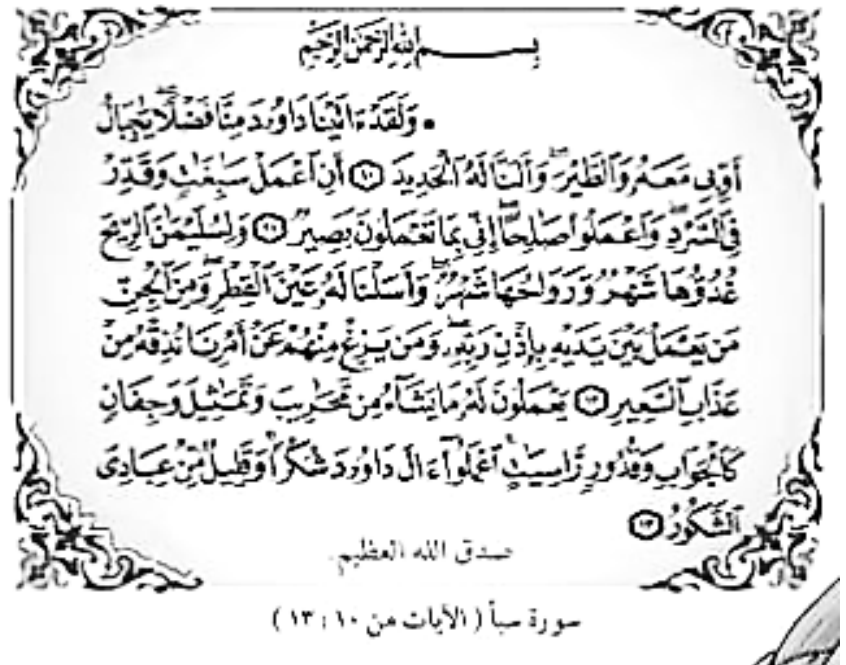 بِسْمِ اللَّهِ الرَّحْمَٰنِ الرَّحِيمِ
۞ وَلَقَدْ ءَاتَيْنَا دَاوُۥدَ مِنَّا فَضْلًا ۖ يَٰجِبَالُ
أَوِّبِى مَعَهُۥ وَٱلطَّيْرَ ۖ وَأَلَنَّا لَهُ ٱلْحَدِيدَ ١٠ أَنِ ٱعْمَلْ سَٰبِغَٰتٍ وَقَدِّرْ
فِى ٱلسَّرْدِ ۖ وَٱعْمَلُوا۟ صَٰلِحًا ۖ إِنِّى بِمَا تَعْمَلُونَ بَصِيرٌ ١١ وَلِسُلَيْمَٰنَ ٱلرِّيحَ
غُدُوُّهَا شَهْرٌ وَرَوَاحُهَا شَهْرٌ ۖ وَأَسَلْنَا لَهُۥ عَيْنَ ٱلْقِطْرِ ۖ وَمِنَ ٱلْجِنِّ
مَن يَعْمَلُ بَيْنَ يَدَيْهِ بِإِذْنِ رَبِّهِۦ ۖ وَمَن يَزِغْ مِنْهُمْ عَنْ أَمْرِنَا نُذِقْهُ مِنْ
عَذَابِ ٱلسَّعِيرِ ١٢ يَعْمَلُونَ لَهُۥ مَا يَشَآءُ مِن مَّحَٰرِيبَ وَتَمَٰثِيلَ وَجِفَانٍ
كَٱلْجَوَابِ وَقُدُورٍ رَّاسِيَٰتٍ ۚ ٱعْمَلُوٓا۟ ءَالَ دَاوُۥدَ شُكْرًا ۚ وَقَلِيلٌ مِّنْ عِبَادِىَ
ٱلشَّكُورُ ١٣
صدق الله العظيم.
سورة سبأ ( الآيات من ١٠ : ١٣ )